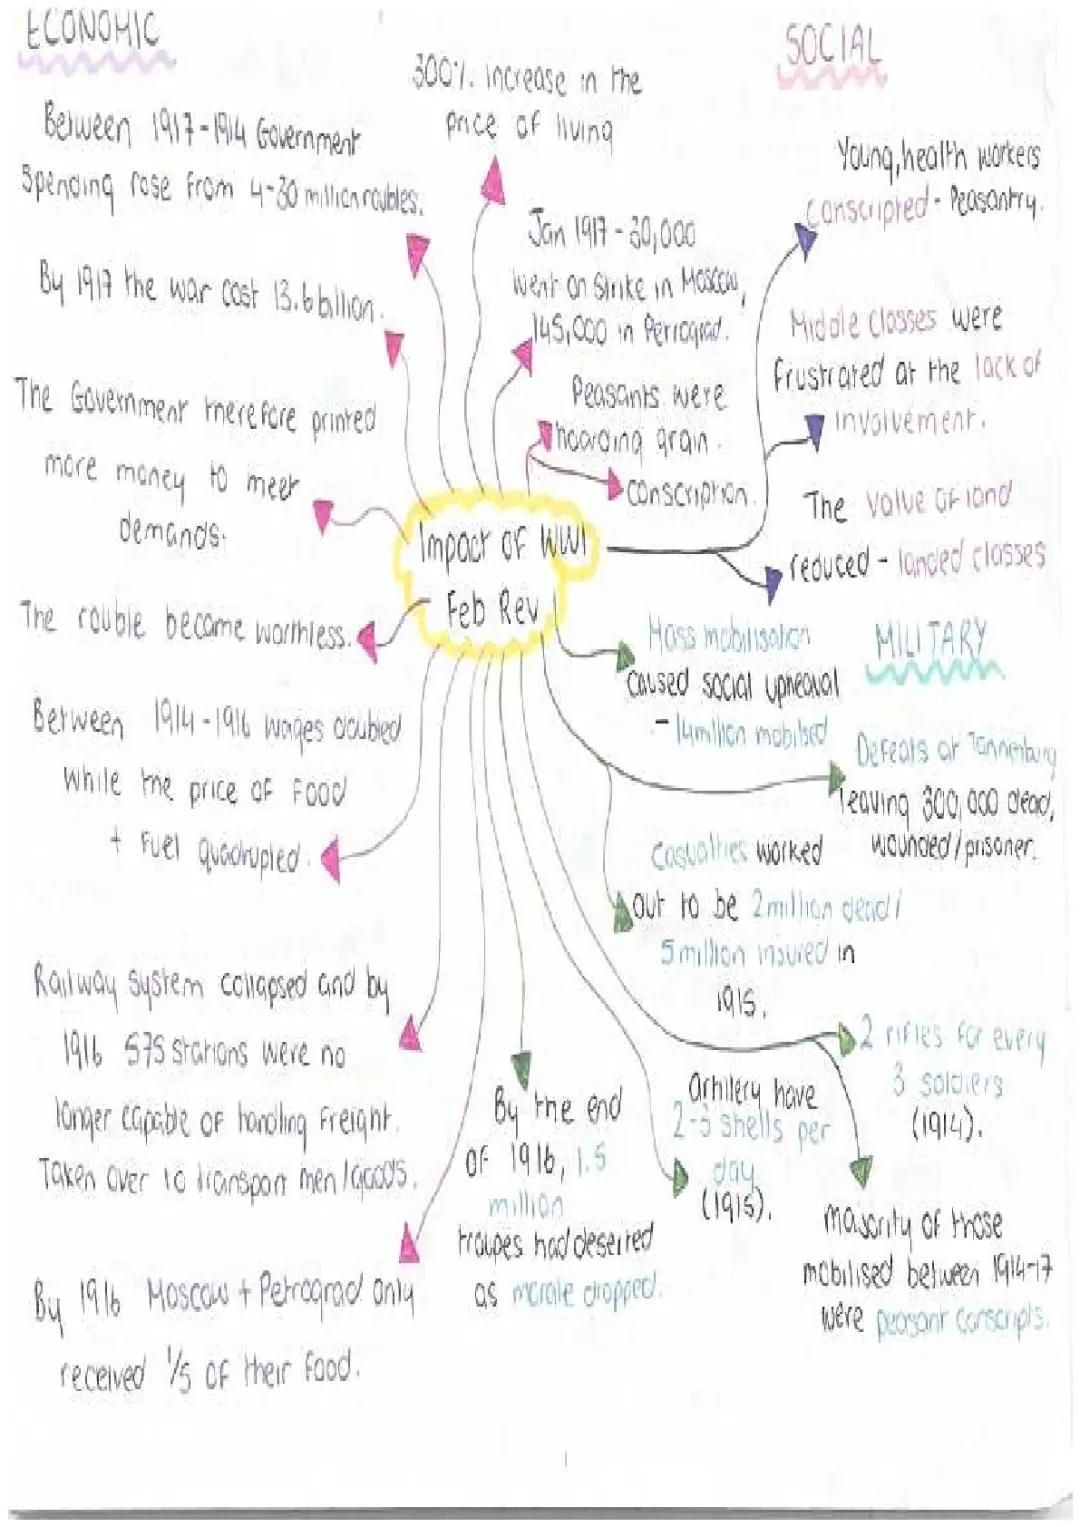 ECONOMIC
Between 1917-1914 Government
spending rose from 4-30 million roubles.
By 1917 the war cost 13.6 billion.
The Government therefore printed
more money to meet
demands.
The rouble became worthless.
Between 1914-1916 wages doubled
while the price of food
+ fuel quadrupled.
Railway system collapsed and by
1916 575 stations were no
longer capable of handling freight.
Taken over to transport men/goods.
By 1916 Moscow + Petrograd only
received 1/5 of their food.
300% increase in the
price of living
Jan 1917 - 30,000
went on strike in Moscow,
145,000 in Petrograd.
Peasants were
hoarding grain.
conscription.
Impact of WW1
Feb Rev
SOCIAL
Young, health workers
conscripted - Peasantry.
Middle classes were
frustrated at the lack of
involvement.
The value of land
reduced - landed classes
MILITARY
Mass mobilisation
caused social upheaval
- 14 million mobilsed
Defeats at Tannenburg
leaving 300,000 dead,
wounded/prisoner.
Casualties worked
out to be 2 million dead/
5 million insured in
1915.
2 rifles for every
3 soldiers
(1914).
majority of those
mobilised between 1914-17
were peasant conscripts.
artillery have
2-3 shells per
day
(1915).
By the end
of 1916, 1.5
million
troupes had deserted
as morale dropped.